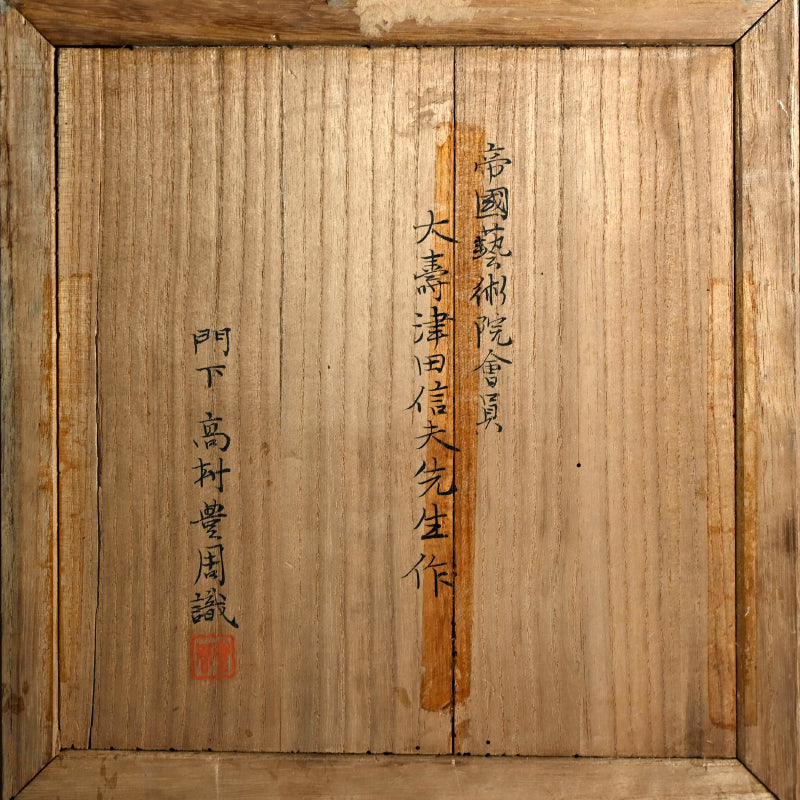 帝國藝術院會員
大壽津田信夫先生作
門下 高村豊周識